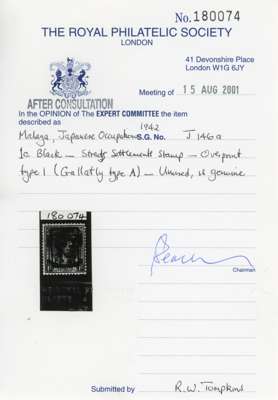 No. 180074
THE ROYAL PHILATELIC SOCIETY
LONDON
41 Devonshire Place
London W1G 6JY
Meeting of 15 AUG 2001
AFTER CONSULTATION
In the OPINION of The EXPERT COMMITTEE the item
described as
Malaya, Japanese Occupation 1942 S.G. No. J 146a
1c Black – Straits Settlements Stamp – Overprint
type 1 (Gallatly type A) – Unused, is genuine
180 074
Chairman
Submitted by R.W. Tompkins